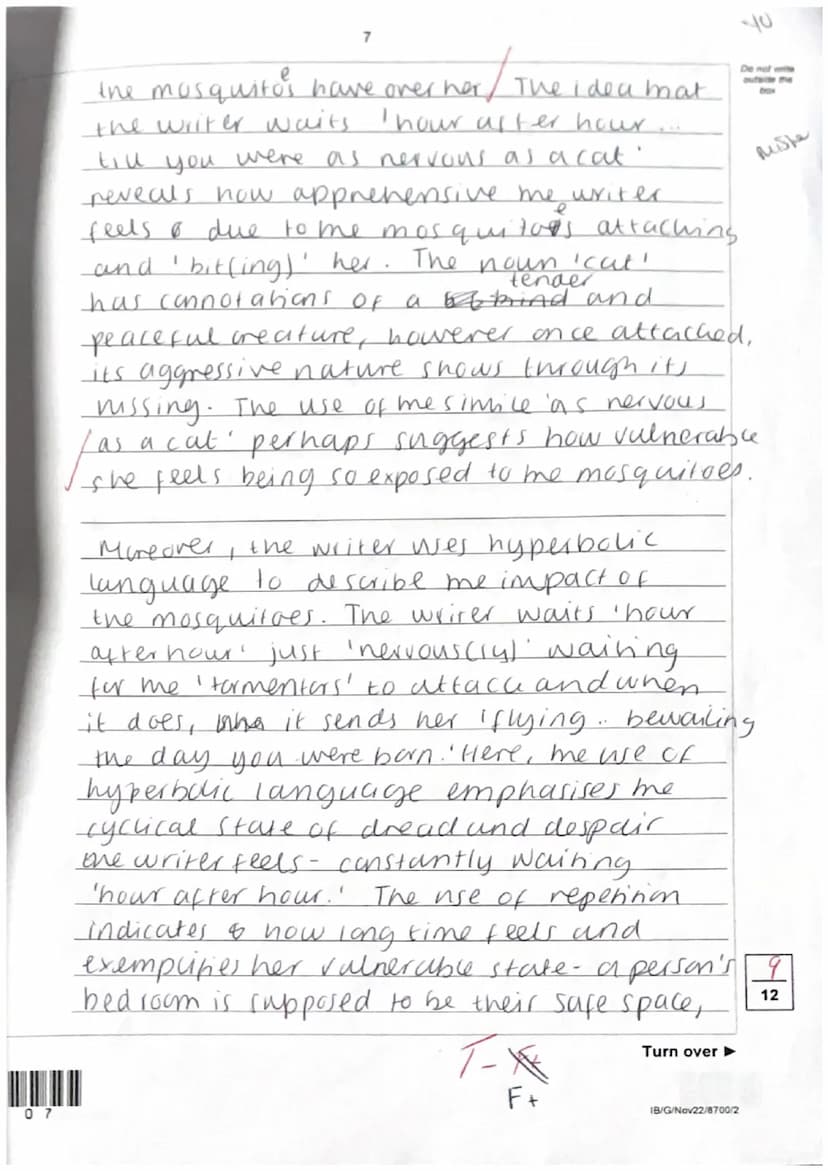 7
Do not write
outside the
box
the mosquitoes have over her / The idea that
the writer waits 'hour after hour...
till you were as nervous as a cat'
reveals how apprehensive the writer
feels due to the mosquitoes attacking
and 'bit(ing)' her. The noun 'cat'
has connotations of a tender and
peaceful creature, however once attacked,
its aggressive nature shows through its
hissing. The use of the simile 'as nervous
as a cat' perhaps suggests how vulnerable
she feels being so exposed to the mosquitoes.
Moreover, the writer uses hyperbolic
language to describe the impact of
the mosquitoes. The writer waits 'hour
after hour' just 'nervous(ly)' waiting
for the 'tormentors' to attack and when
it does, it sends her 'flying.. bewailing
the day you were born.' Here, the use of
hyperbolic language emphasises the
cyclical state of dread and despair
the writer feels - constantly waiting
'hour after hour.' The use of repetition
indicates how long time feels and
exemplifies her vulnerable state - a person's
bedroom is supposed to be their safe space,
9
12
T-
F+
Turn over ►
0 7
IB/G/Nov22/8700/2